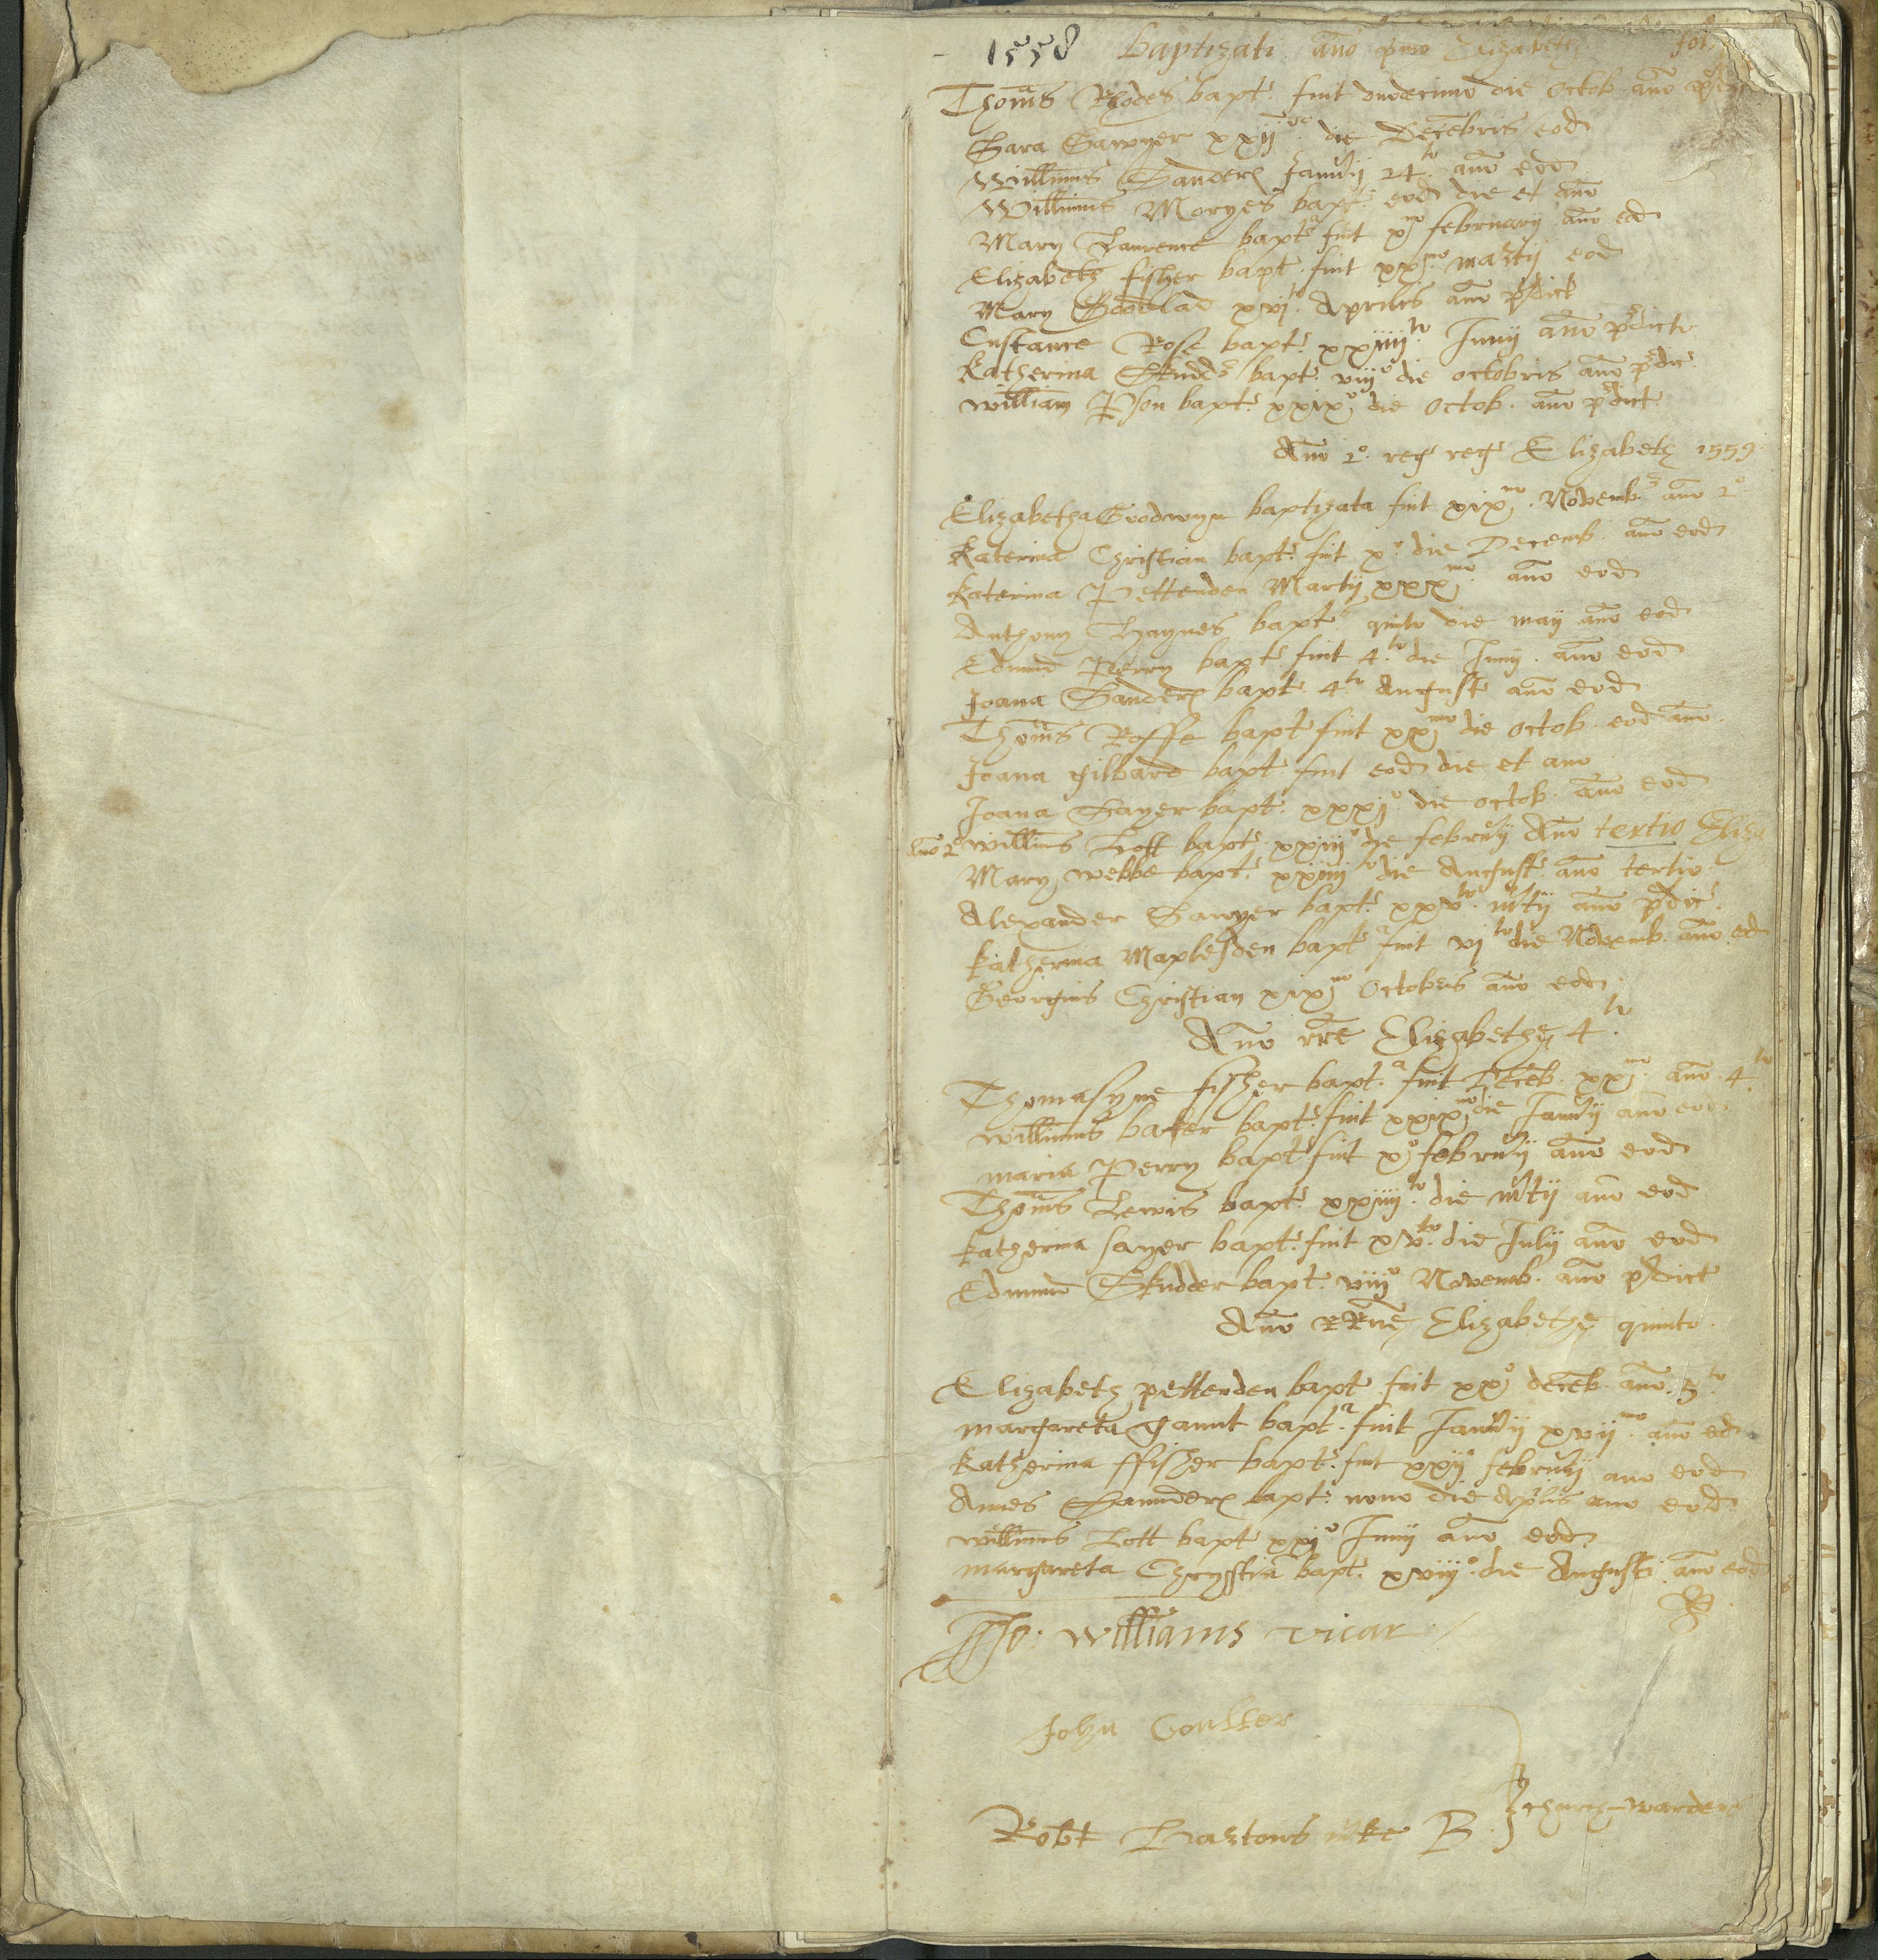 1558 baptizati año pmo Elizabeth fol.
Thomas Rhodes bapt. fuit undecimo die Octob. año
Sara Sawyer xxij die Decebris eod
Willimus Sanders Januarij 24to año eod
Willimus Moryes bapt. eod die et año
Mary Laurence bapta fuit xmo february año eod
Elizabeth fisher bapt. fuit xxmo martij eod
Mary Goodlad xvjto Aprilis año pdict
Custance Rose bapt. xxiiijto Junij año pdict
Katherina Skudder bapt. viijo die octobris año pdic
William Pson bapt. xxixo die Octob. año pdict
Año 2o reg reg Elizabeth 1559
Elizabetha Goodwyn baptizata fuit xixmo Novemb. año 2o
Katerina Christian bapt. fuit xo die Decemb. año eod
Katerina Pettenden Martij xxxmo año eod
Anthony Haynes bapt. quito die maij año eod
Edmund Perry bapt fuit 4to die Junij año eod
Joana Sanders bapt. 4to August año eod
Thomas Roffe bapt fuit xxmo die Octob. eod año
Joana gilbard bapt fuit eod die et ano
Joana Sayer bapt. xxxjo die octob. año eod
Año 2o Willims Lott bapt. xxiijo die februarij Año tertio Eliza
Mary Webbe bapt. xxiiijto die August. año tertio
Alexander Sawyer bapt. xxvto mrtij año pdic
Katherina Maplesden bapta fuit vjto die Novemb. año eod
Georgius Christian xixmo Octobris año eod
Año rre Elizabethe 4to
Thomasyne fisher bapta fuit Deceb. xxmo año 4to
Willimus baker bapt. fuit xxixmo die Januarij año eod
maria Perry bapt fuit xo februarij año eod
Thomas Lewis bapt. xxiiijto die mrtij año eod
Katherina sayer bapt. fuit xvto die Julij año eod
Edmund Skudder bapt. viijo Novemb. año pdict
Año RRne Elizabethe quinto
Elizabeth pettenden bapt fuit xxo deceb. año 5to
margareta gaunt bapta fuit Januarij xvijmo año eod
Katherina ffisher bapt. fuit xxijo februarij ano eod
Annes Saunders bapt. nono die Aprlis ano eod
Willimus Lott bapt xxjo Junij año eod
margareta Chrystia bapt. xviijo die Augusti año eod
Jo: Williams vicar
John Coulter
Church-wardens
Robt Haztons mrke B